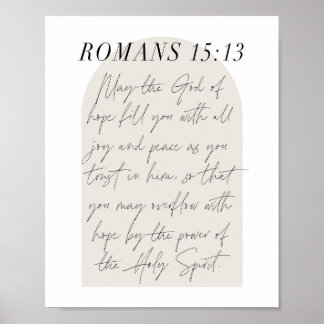 ROMANS 15:13
May the God of
hope fill you with all
joy and peace as you
trust in him, so that
you may overflow with
hope by the power of
the Holy Spirit.